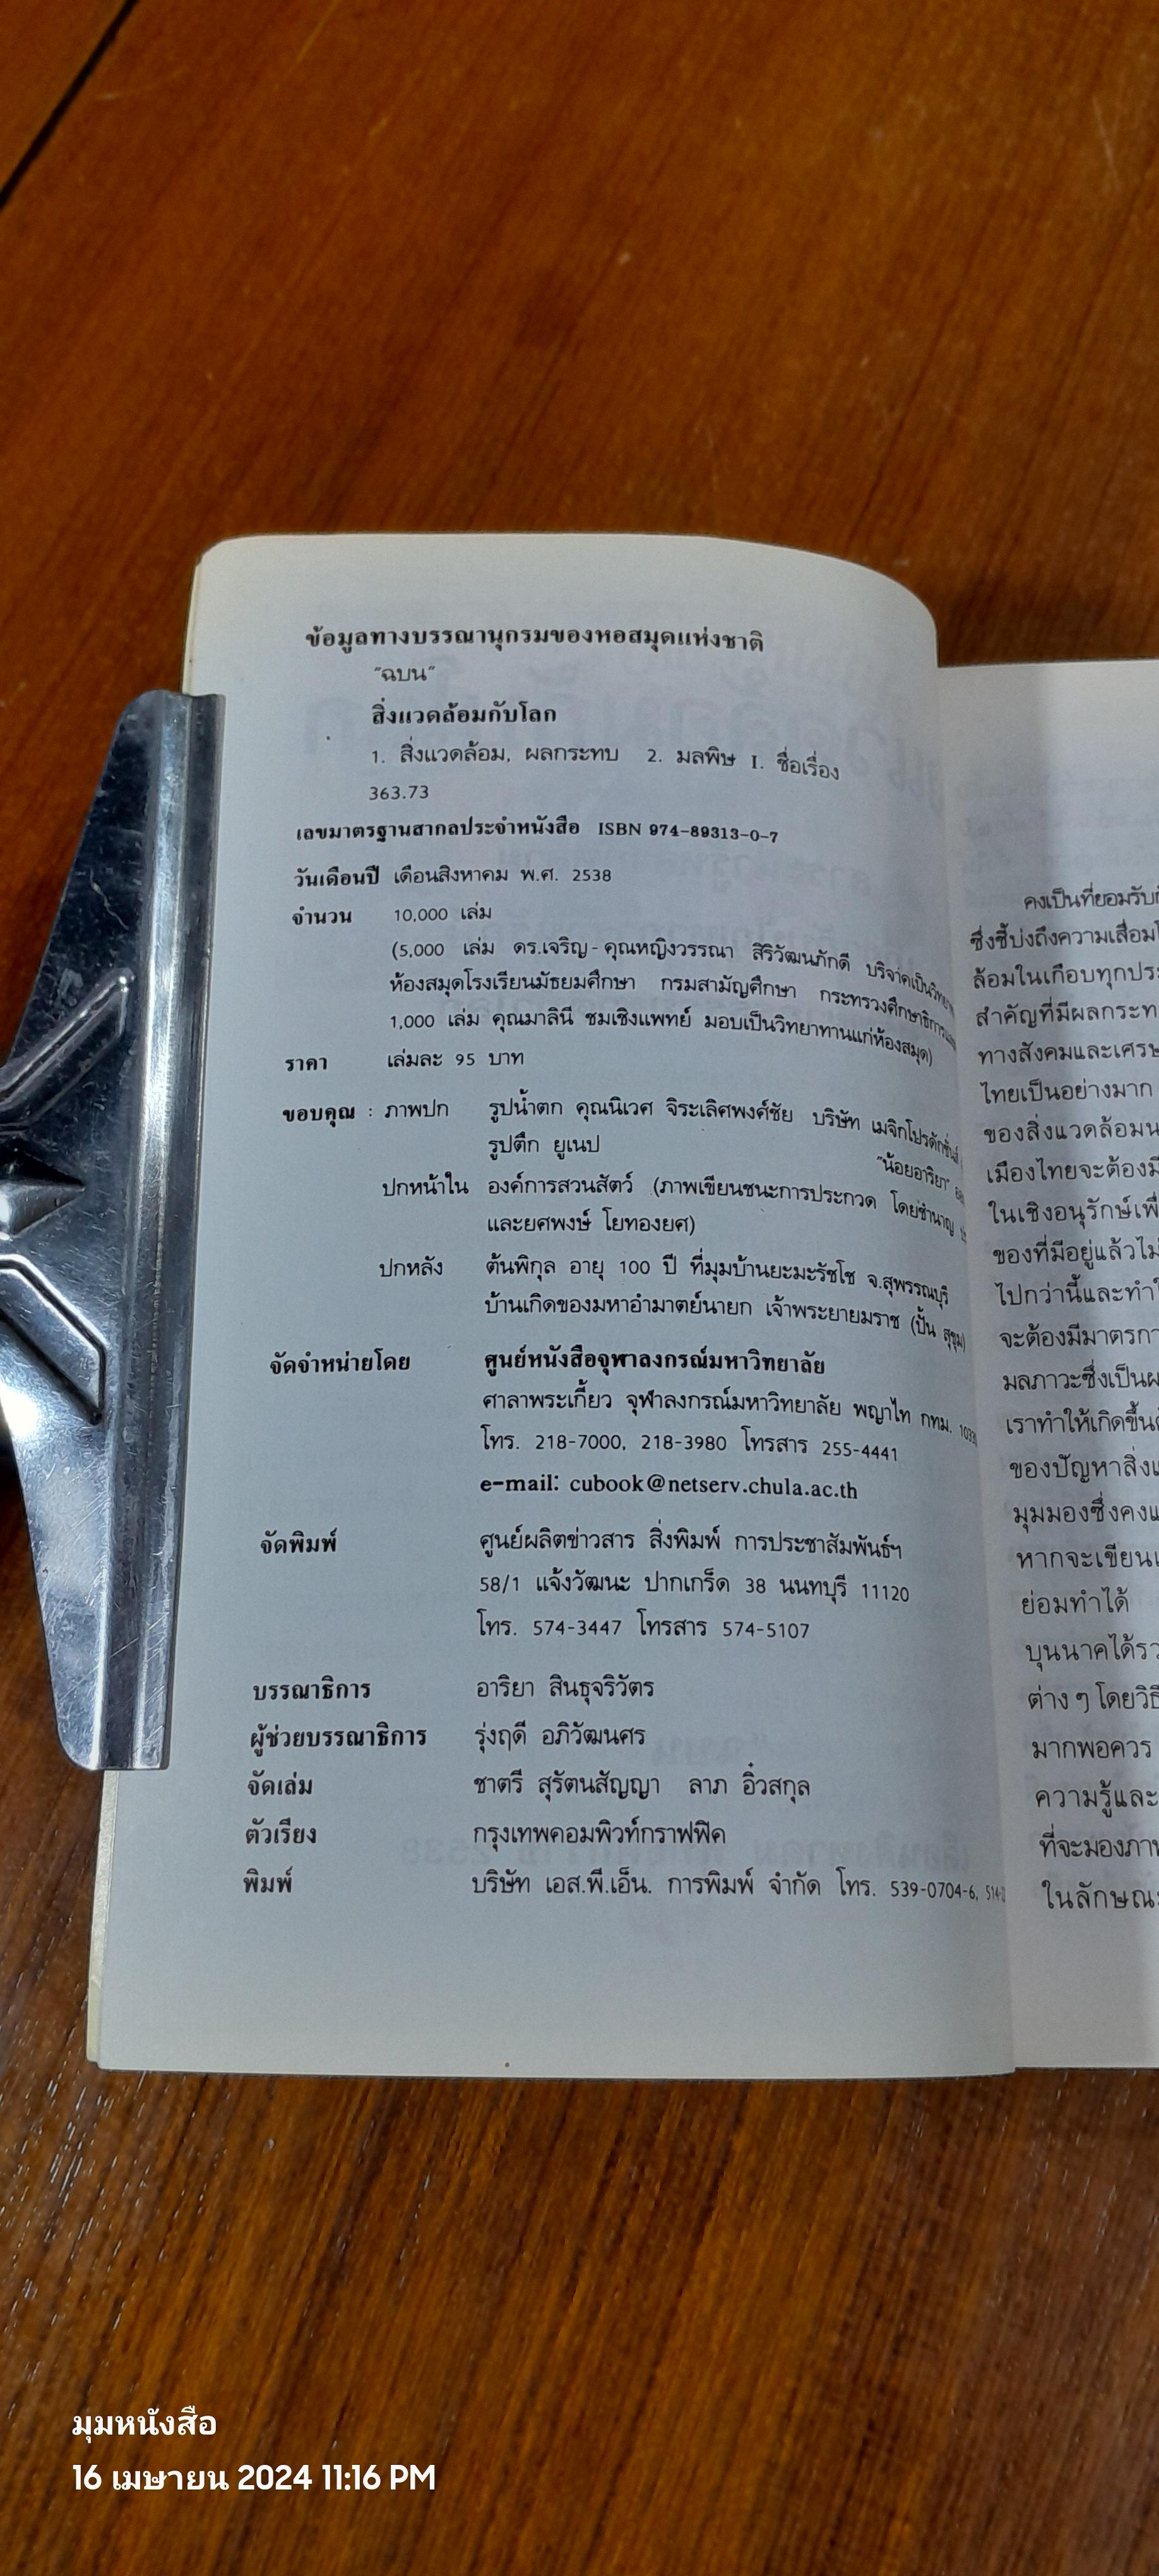 ข้อมูลทางบรรณานุกรมของหอสมุดแห่งชาติ
"ฉบน"
สิ่งแวดล้อมกับโลก
1. สิ่งแวดล้อม, ผลกระทบ 2. มลพิษ I. ชื่อเรื่อง
363.73
เลขมาตรฐานสากลประจำหนังสือ ISBN 974-89313-0-7
วันเดือนปี เดือนสิงหาคม พ.ศ. 2538
จำนวน 10,000 เล่ม
(5,000 เล่ม ดร.เจริญ-คุณหญิงวรรณา สิริวัฒนภักดี บริจาคเป็น
ห้องสมุดโรงเรียนมัธยมศึกษา กรมสามัญศึกษา กระทรวงศึกษาธิการ
1,000 เล่ม คุณมาลินี ชมเชิงแพทย์ มอบเป็นวิทยาทานแก่ห้องสมุด)
ราคา เล่มละ 95 บาท
ขอบคุณ : ภาพปก รูปน้ำตก คุณนิเวศ จิระเลิศพงศ์ชัย บริษัท เมจิกโปรดักชั่นส์
รูปตึก ยูเนป "น้อยอาริยา"
ปกหน้าใน องค์การสวนสัตว์ (ภาพเขียนชนะการประกวด โดยชำนาญ
และยศพงษ์ โยทองยศ)
ปกหลัง ต้นพิกุล อายุ 100 ปี ที่มุมบ้านยะมะรัชโช จ.สุพรรณบุรี
บ้านเกิดของมหาอำมาตย์นายก เจ้าพระยายมราช (ปั้น สุขุม)
จัดจำหน่ายโดย ศูนย์หนังสือจุฬาลงกรณ์มหาวิทยาลัย
ศาลาพระเกี้ยว จุฬาลงกรณ์มหาวิทยาลัย พญาไท กทม. 10330
โทร. 218-7000, 218-3980 โทรสาร 255-4441
e-mail: cubook@netserv.chula.ac.th
จัดพิมพ์ ศูนย์ผลิตข่าวสาร สิ่งพิมพ์ การประชาสัมพันธ์ฯ
58/1 แจ้งวัฒนะ ปากเกร็ด 38 นนทบุรี 11120
โทร. 574-3447 โทรสาร 574-5107
บรรณาธิการ อาริยา สินธุจริวัตร
ผู้ช่วยบรรณาธิการ รุ่งฤดี อภิวัฒนศร
จัดเล่ม ชาตรี สุรัตนสัญญา ลาภ อิ๋วสกุล
ตัวเรียง กรุงเทพคอมพิวท์กราฟฟิค
พิมพ์ บริษัท เอส.พี.เอ็น. การพิมพ์ จำกัด โทร. 539-0704-6,
คงเป็นที่ยอมรับ
ซึ่งชี้บ่งถึงความเสื่อม
ล้อมในเกือบทุก
สำคัญที่มีผล
ทางสังคมและ
ไทยเป็นอย่างมาก
ของสิ่งแวดล้อม
เมืองไทยจะต้อง
ในเชิงอนุรักษ์
ของที่มีอยู่แล้ว
ไปกว่านี้และ
จะต้องมี
มลภาวะซึ่งเป็น
เราทำให้เกิดขึ้น
ของปัญหา
มุมมองซึ่งคง
หากจะเขียน
ย่อมทำได้
บุนนาคได้
ต่าง ๆ โดย
มากพอควร
ความรู้และ
ที่จะมอง
ในลักษณะ
มุมหนังสือ
16 เมษายน 2024 11:16 PM